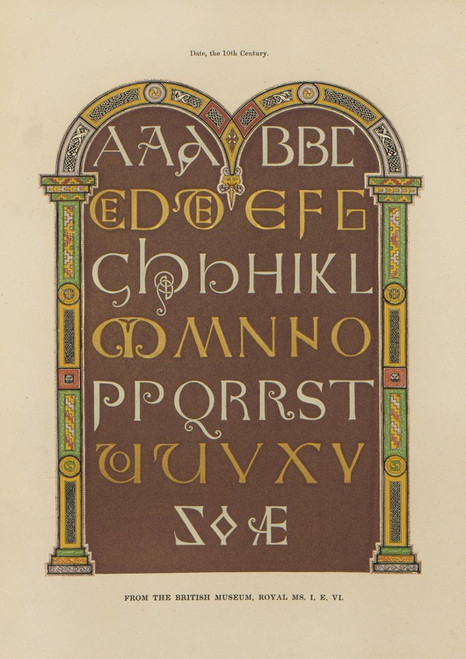 Date, the 10th Century.
A A A B B C
E D DE E F G
G h h H I K L
M M N N O
P P Q R R S T
U U V X Y
Z O Æ
FROM THE BRITISH MUSEUM, ROYAL MS. I. E. VI.